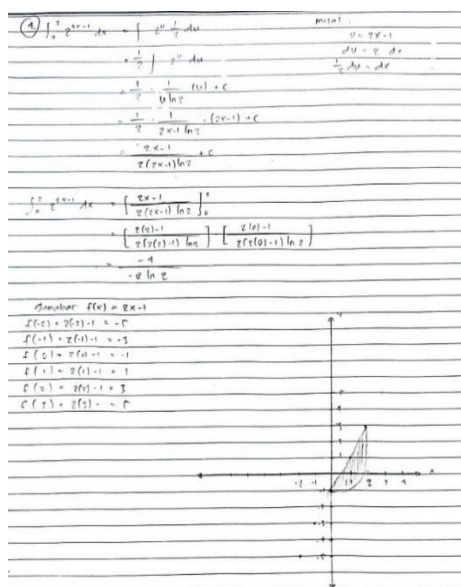 ④ ∫₀² 2^(2x-1) dx = ∫ 2^u 1/2 du
misal :
u = 2x-1
du = 2 dx
1/2 du = dx
= 1/2 ∫ 2^u du
= 1/2 · 1/(u ln 2) (u) + c
= 1/2 · 1/(2x-1 ln 2) · (2x-1) + c
= (2x-1)/(2(2x-1) ln 2) + c
∫₀² 2^(2x-1) dx = [(2x-1)/(2(2x-1) ln 2)]₀²
= [(2(2)-1)/(2(2(2)-1) ln 2)] - [(2(0)-1)/(2(2(0)-1) ln 2)]
= -4/(-8 ln 2)
Gambar f(x) = 2x-1
f(-2) = 2(-2)-1 = -5
f(-1) = 2(-1)-1 = -3
f(0) = 2(0)-1 = -1
f(1) = 2(1)-1 = 1
f(2) = 2(2)-1 = 3
f(3) = 2(3)- = 5
-2 -1 1 2 3 4